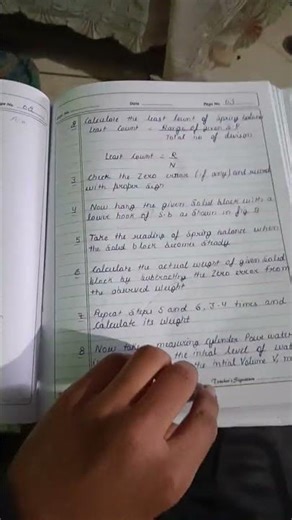 Date
Page No. 63
2 Calculate the least count of spring balance
Least Count = Range of given S.B
Total no of division
Least Count = R
N
3 Check the Zero error (if any) and record
with proper sign
4 Now hang the given Solid block with a
lower hook of S.B as shown in fig
5 Take the reading of spring balance when
the Solid block become steady
6 Calculate the actual weight of given Solid
block by subtracting the Zero error from
the observed weight
7. Repeat steps 5 and 6, 3-4 times and
Calculate its weight
8 Now take measuring cylinder Pour water
the initial level of wat
the initial Volume V,
Teacher's Signature